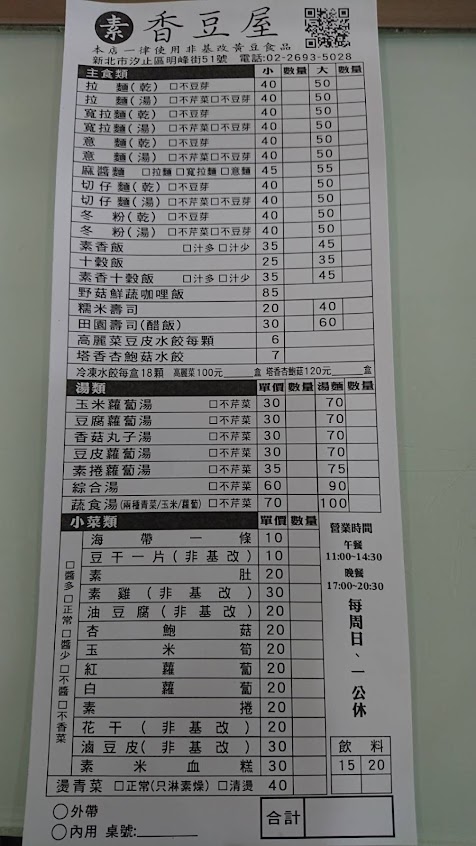 素 香豆屋
本店一律使用非基改黃豆食品
新北市汐止區明峰街51號 電話:02-2693-5028
主食類 小 數量 大 數量
拉麵(乾) □不豆芽 40 50
拉麵(湯) □不芹菜□不豆芽 40 50
寬拉麵(乾) □不豆芽 40 50
寬拉麵(湯) □不芹菜□不豆芽 40 50
意麵(乾) □不豆芽 40 50
意麵(湯) □不芹菜□不豆芽 40 50
麻醬麵 □拉麵 □寬拉麵 □意麵 45 55
切仔麵(乾) □不豆芽 40 50
切仔麵(湯) □不芹菜□不豆芽 40 50
冬粉(乾) □不豆芽 40 50
冬粉(湯) □不芹菜□不豆芽 40 50
素香飯 □汁多 □汁少 35 45
十穀飯 25 35
素香十穀飯 □汁多 □汁少 35 45
野菇鮮蔬咖哩飯 85
糯米壽司 20 40
田園壽司(醋飯) 30 60
高麗菜豆皮水餃每顆 6
塔香杏鮑菇水餃 7
冷凍水餃每盒18顆 高麗菜100元____盒 塔香杏鮑菇120元____盒
湯類 單價 數量 湯麵 數量
玉米蘿蔔湯 □不芹菜 30 70
豆腐蘿蔔湯 □不芹菜 30 70
香菇丸子湯 □不芹菜 30 70
豆皮蘿蔔湯 □不芹菜 30 70
素捲蘿蔔湯 □不芹菜 35 75
綜合湯 □不芹菜 60 90
蔬食湯(兩種青菜/玉米/蘿蔔) □不芹菜 70 100
小菜類 單價 數量
□醬多□正常□醬少□不醬□不香菜
海帶一條 10
豆干一片(非基改) 10
素肚 20
素雞(非基改) 30
油豆腐(非基改) 20
杏鮑菇 20
玉米筍 20
紅蘿蔔 20
白蘿蔔 20
素捲 20
花干(非基改) 20
滷豆皮(非基改) 30
素米血糕 30
燙青菜 □正常(只淋素燥) □清燙 40
營業時間
午餐
11:00~14:30
晚餐
17:00~20:30
每周日、一公休
飲料
15 20
○外帶
○內用 桌號:________
合計